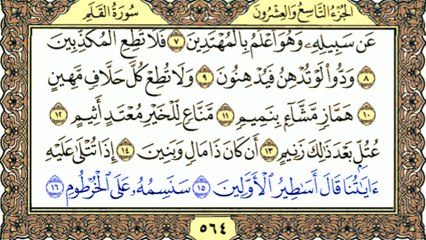 الجُزْءُ التَّاسِعُ وَالعِشْرُونَ
سُورَةُ القَلَمِ
عَن سَبِيلِهِۦ وَهُوَ أَعْلَمُ بِٱلْمُهْتَدِينَ ٧ فَلَا تُطِعِ ٱلْمُكَذِّبِينَ
٨ وَدُّوا۟ لَوْ تُدْهِنُ فَيُدْهِنُونَ ٩ وَلَا تُطِعْ كُلَّ حَلَّافٍ مَّهِينٍ
١٠ هَمَّازٍ مَّشَّآءٍۭ بِنَمِيمٍ ١١ مَّنَّاعٍ لِّلْخَيْرِ مُعْتَدٍ أَثِيمٍ ١٢
عُتُلٍّۭ بَعْدَ ذَٰلِكَ زَنِيمٍ ١٣ أَن كَانَ ذَا مَالٍ وَبَنِينَ ١٤ إِذَا تُتْلَىٰ عَلَيْهِ
ءَايَٰتُنَا قَالَ أَسَٰطِيرُ ٱلْأَوَّلِينَ ١٥ سَنَسِمُهُۥ عَلَى ٱلْخُرْطُومِ ١٦
٥٦٤